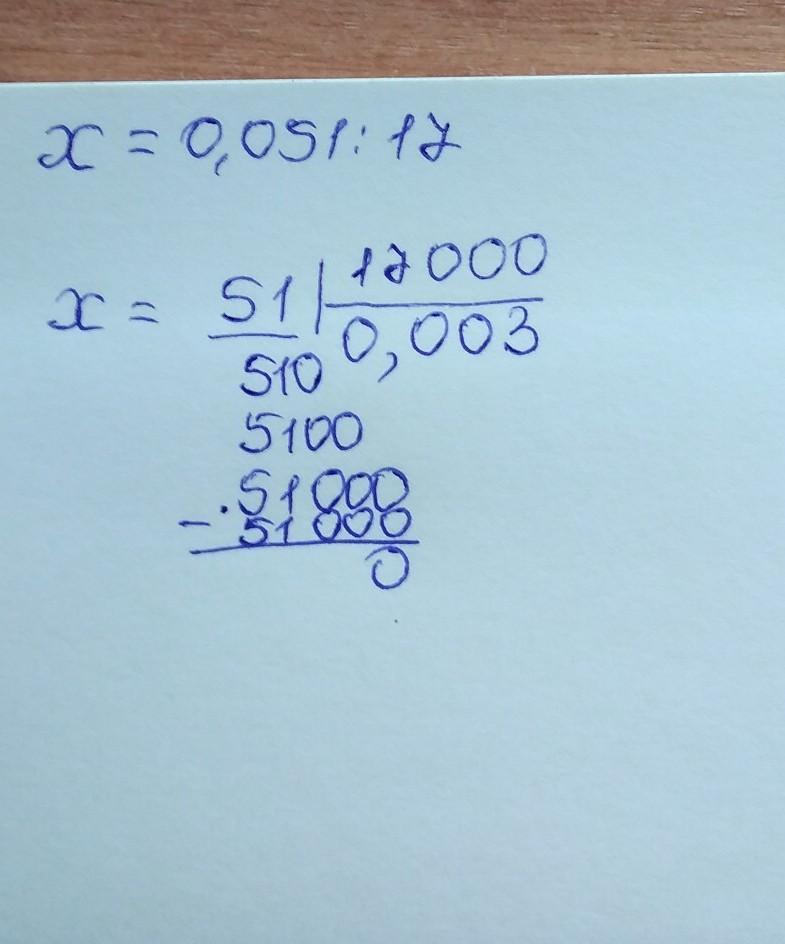 x = 0,051 : 17
x = 51 | 17000
510 0,003
5100
51000
- 51000
0